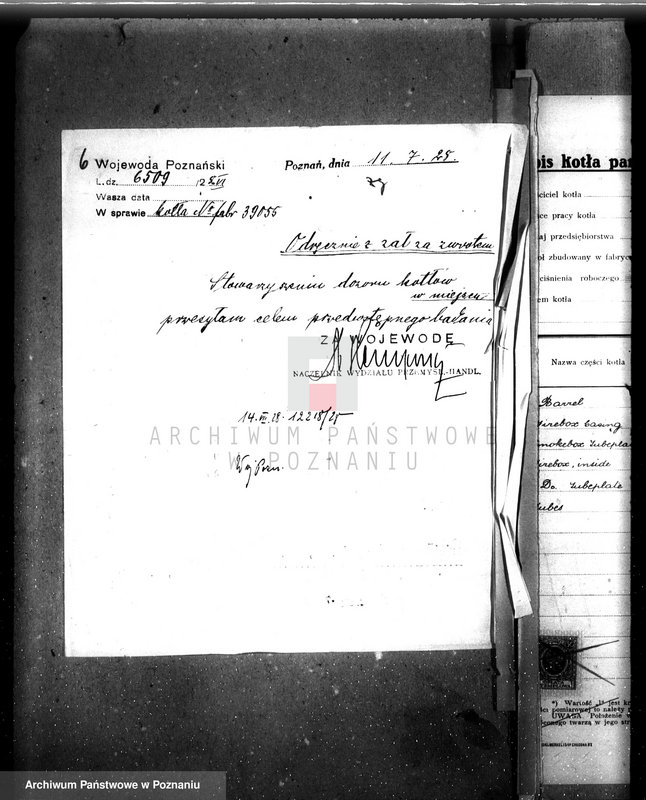 6 Wojewoda Poznański
Poznań, dnia 11. 7. 25.
L. dz. 6509 /2 VI
Wasza data
W sprawie kotła № fabr 39055
Odręcznie z zał za zwrotem
Stowarzyszeniu dozoru kotłów
w miejscu
przesyłam celem przedwstępnego badania
ZA WOJEWODĘ
NACZELNIK WYDZIAŁU PRZEMYSŁ.-HANDL.
12218/25
ARCHIWUM PAŃSTWOWE
W POZNANIU
Woj Pozn.
pis kotła par
ściciel kotła
ce pracy kotła
aj przedsiębiorstwa
ół zbudowany w fabryc
ciśnienia roboczego
em kotła
Nazwa części kotła
Barrel
irebox casing
mokebox tubeplat
irebox, inside
Do. tubeplate
ubes
*) Wartość jest k
ści pomiarowej to należy
UWAGA. Położenie
onego twarzą w jego str
Archiwum Państwowe w Poznaniu